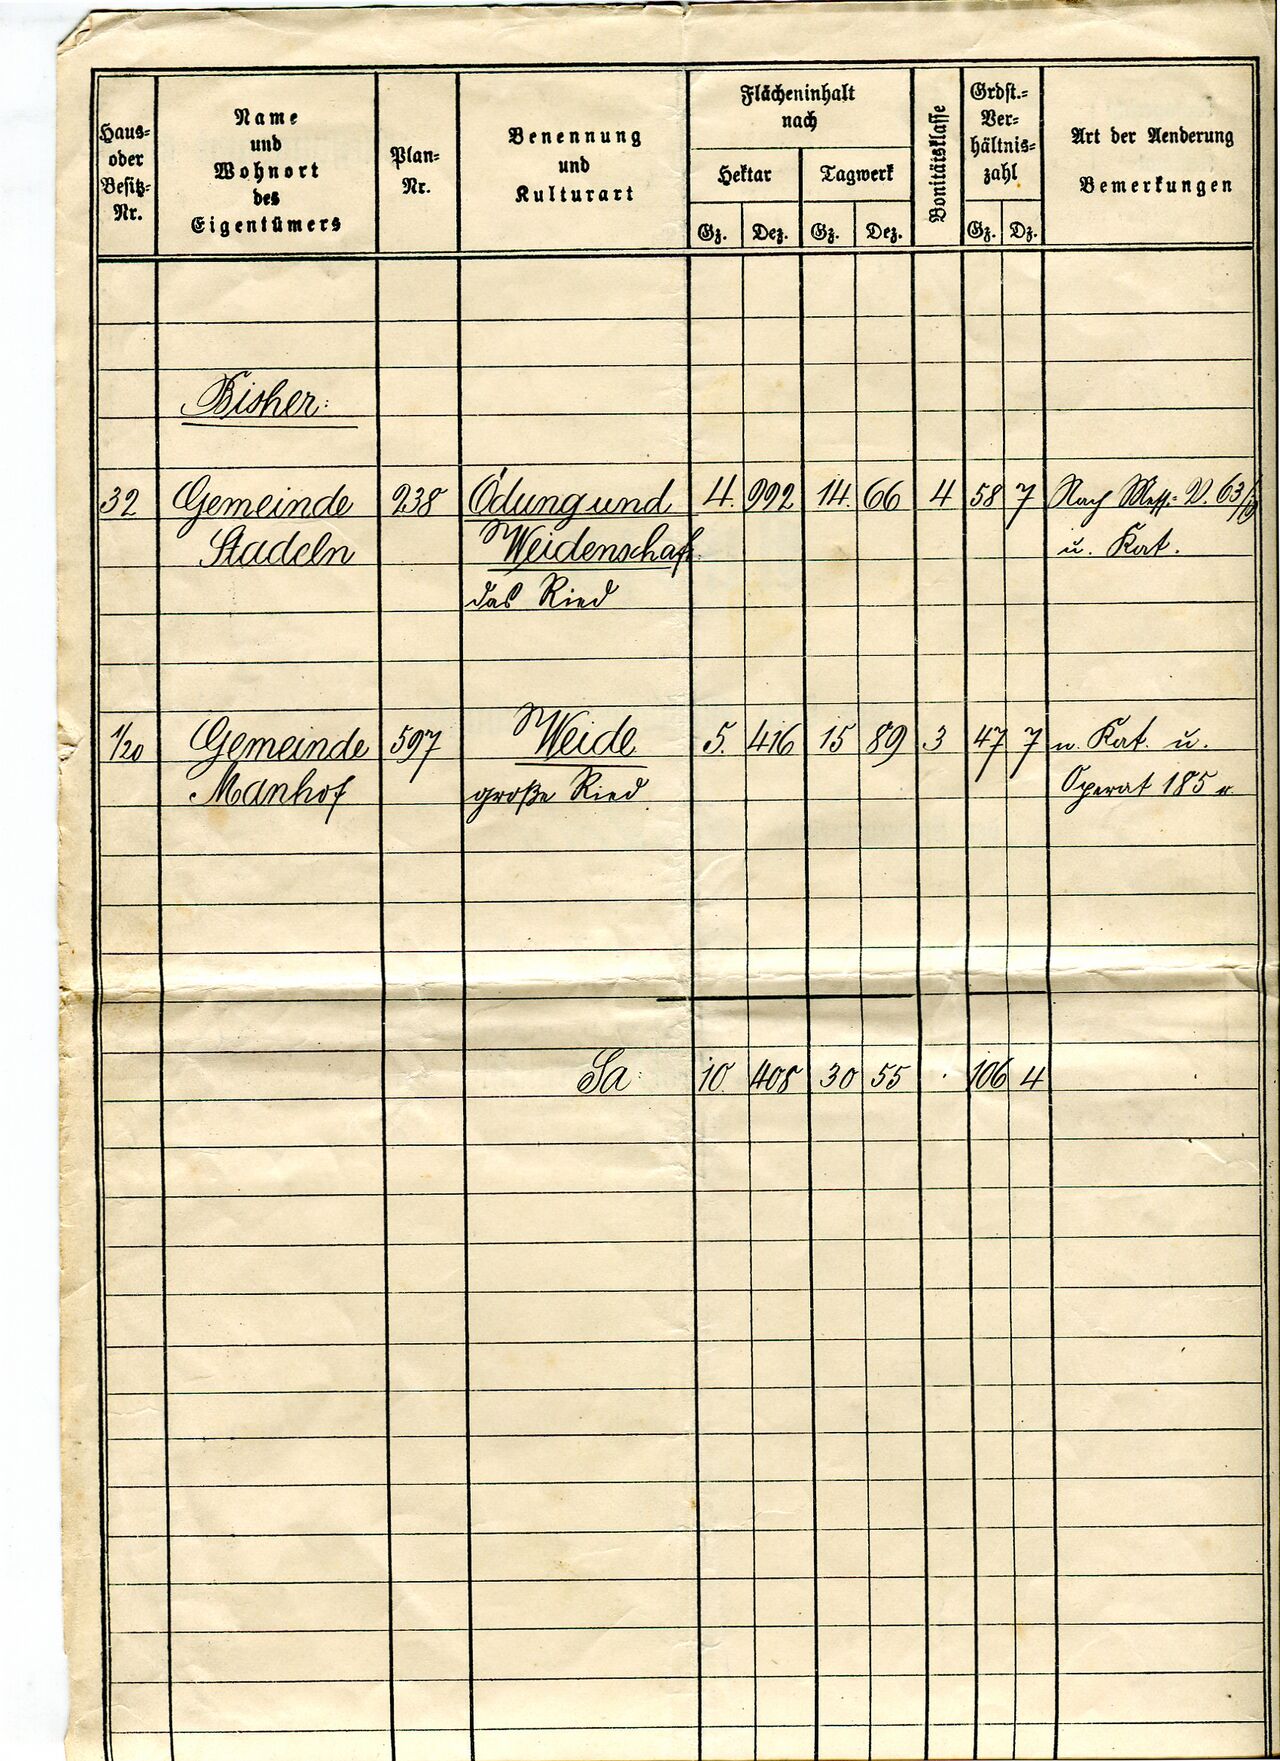 Haus- oder Besitz-Nr.
Name und Wohnort des Eigentümers
Plan-Nr.
Benennung und Kulturart
Flächeninhalt nach
Hektar
Tagwerk
Gz. Dez. Gz. Dez.
Bonitätsklasse
Grdst.-Ver-hältnis-zahl
Gz. Dz.
Art der Aenderung
Bemerkungen
Bisher:
32 Gemeinde 238 Ödung und 4. 992 14. 66 4 58 7 Nach Mess.- V. 63/
Stadeln Weidenschaft u. Kat.
das Ried
1/20 Gemeinde 597 Weide 5. 416 15 89 3 47 7 n. Kat. u.
Manhof große Ried Operat 185
Sa: 10. 408 30 55 . 106 4